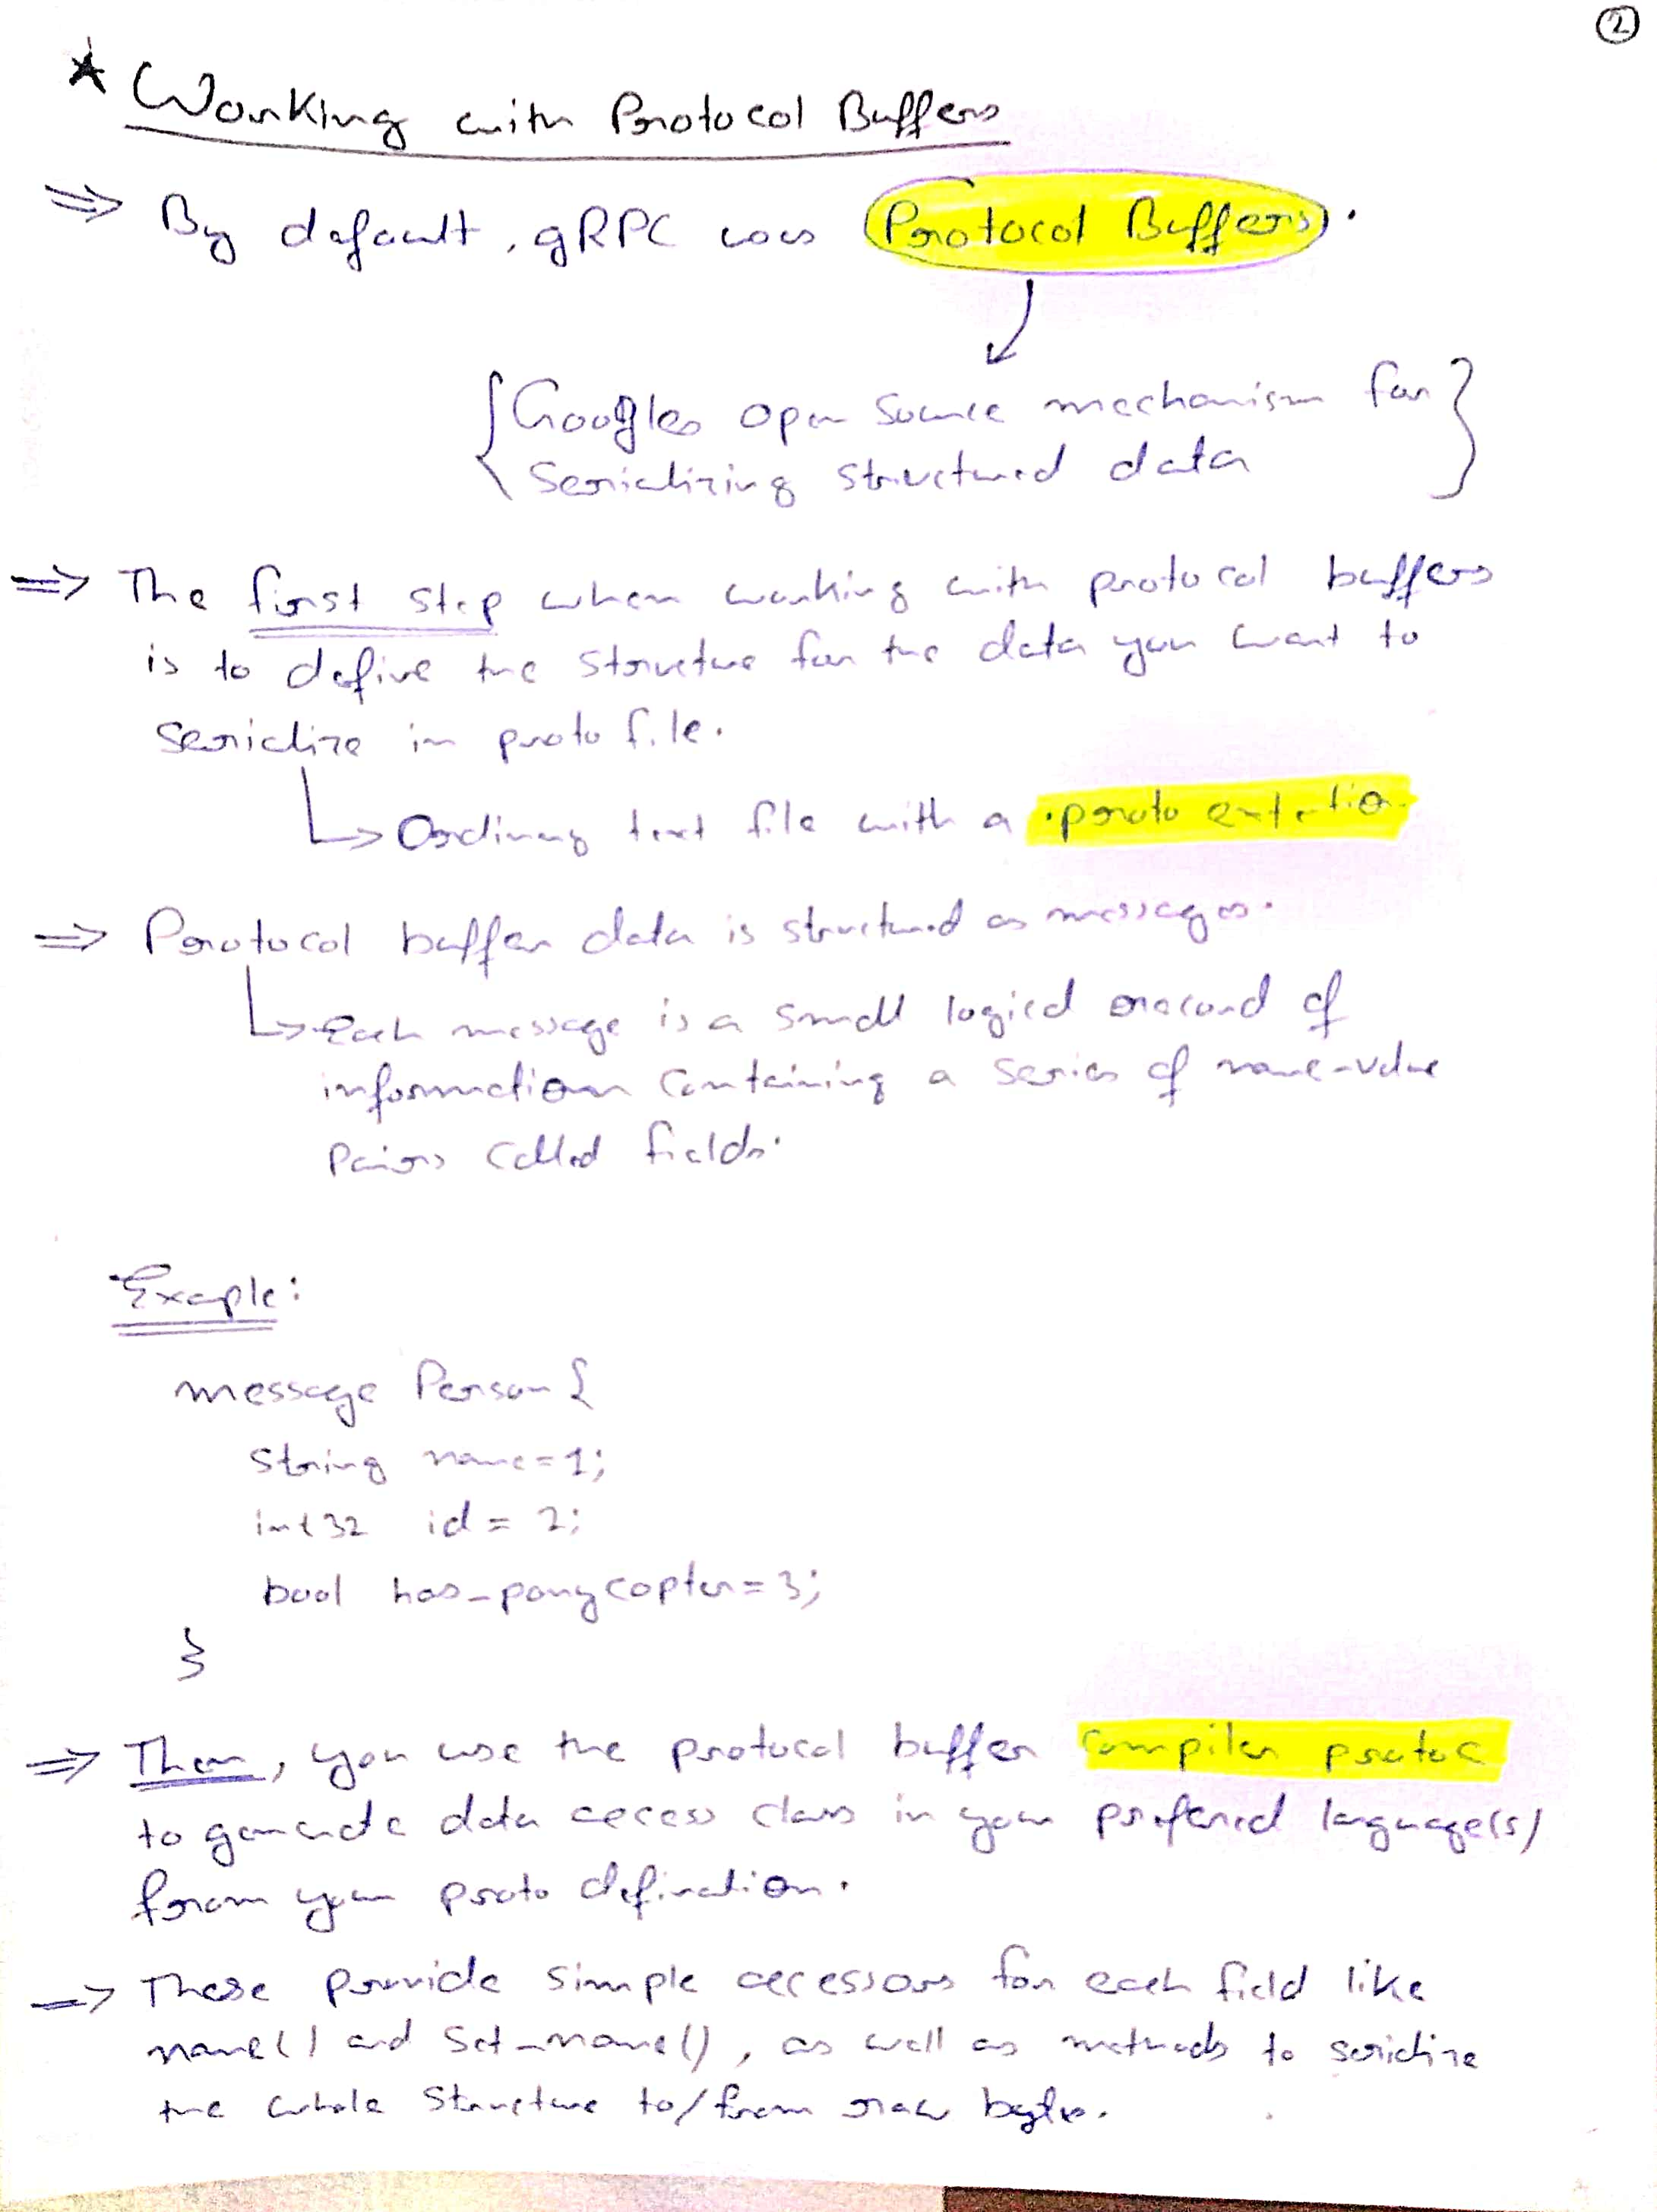 2
* Working with Protocol Buffers
⇒ By default, gRPC uses Protocol Buffers.
{Googles open source mechanism for
serializing structured data}
⇒ The first step when working with protocol buffers
is to define the structure for the data you want to
serialize in proto file.
↳ Ordinary text file with a .proto extention
⇒ Protocol buffer data is structured as messages.
↳ Each message is a small logical record of
information containing a series of name-value
pairs called fields.
Exaple:
message Person {
string name=1;
int32 id = 2;
bool has_ponycopter=3;
}
⇒ Then, you use the protocol buffer compiler protoc
to generate data access class in your preferred language(s)
from your proto defination.
⇒ These provide simple accessors for each field like
name() and set_name(), as well as methods to serialize
the whole structure to/from raw bytes.